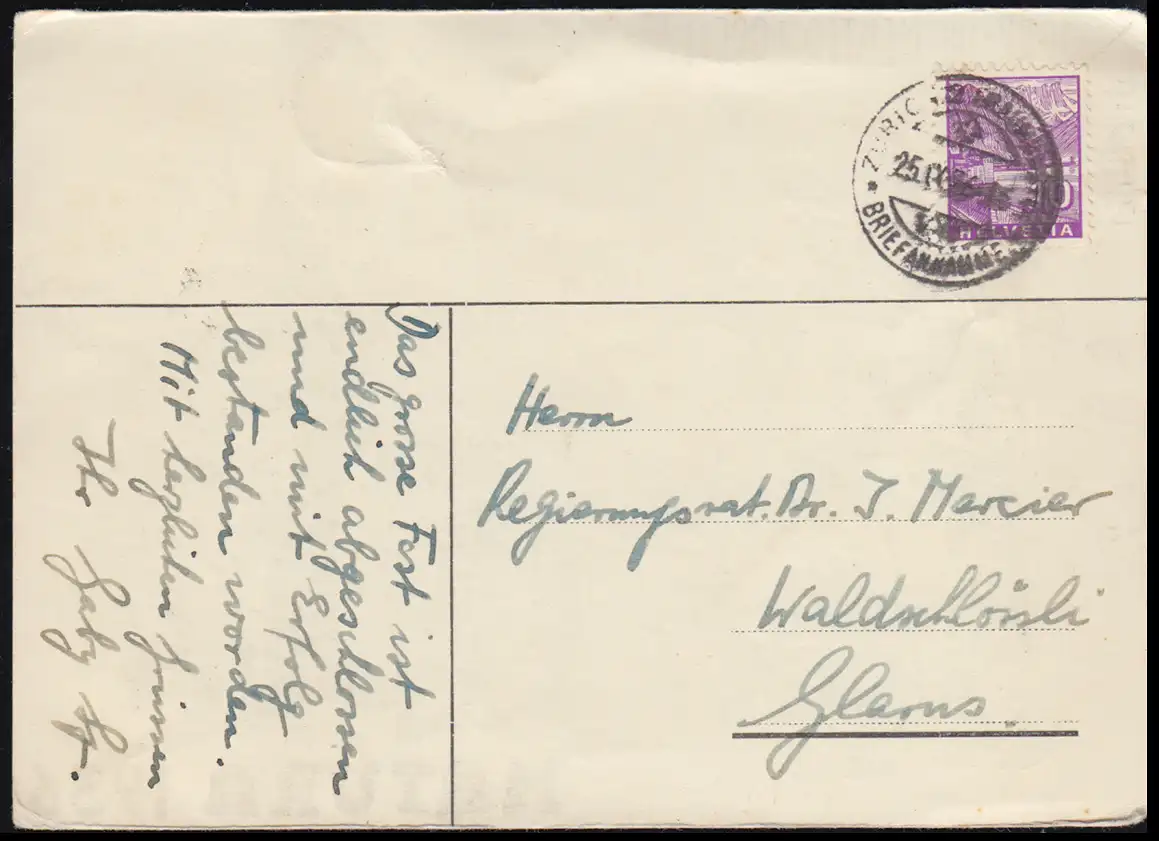 ZÜRIC
25.IX.
BRIEFANNAHME
10
HELVETIA
Das grosse Fest ist
endlich abgeschlossen
und mit Erfolg
bestanden worden.
Mit herzlichen Grüssen
Ihr Gaby
Herrn
Regierungsrat. Dr. J. Mercier
Waldschlössli
Glarus.